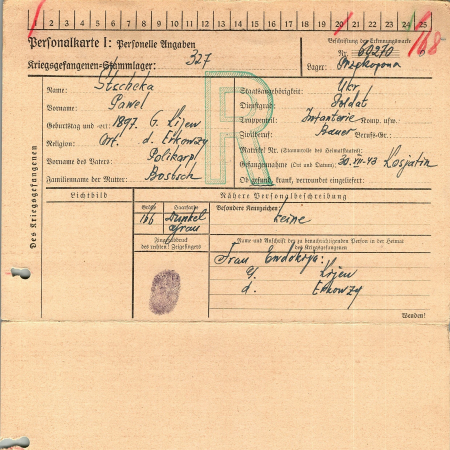 1 2 3 4 5 6 7 8 9 10 11 12 13 14 15 16 17 18 19 20 21 22 23 24 25
Personalkarte I: Personelle Angaben
Kriegsgefangenen-Stammlager: 327
Beschriftung der Erkennungsmarke
Nr. 60270
168
Lager: Przekopona
Des Kriegsgefangenen
Name: Stscheka
Vorname: Pawel
Geburtstag und -ort: 1897. G. Kijew
Religion: Ort. d. Erkowzy
Vorname des Vaters: Polikarp
Familienname der Mutter: Bostsch
R
Staatsangehörigkeit: Ukr
Dienstgrad: Soldat
Truppenteil: Infanterie Komp. usw.
Zivilberuf: Bauer Berufs-Gr.:
Matrikel Nr. (Stammrolle des Heimatstaates):
Gefangennahme (Ort und Datum): 30.VII-43 Losjatin
Ob gesund, krank, verwundet eingeliefert:
Lichtbild
Nähere Personalbeschreibung
Größe
Haarfarbe
Besondere Kennzeichen:
166
Dunkel
grau
keine
Fingerabdruck
des rechten! Zeigefingers
Name und Anschrift der zu benachrichtigenden Person in der Heimat
des Kriegsgefangenen
Frau Ewdokija:
g. Kijew
d. Erkowzy
Wenden!